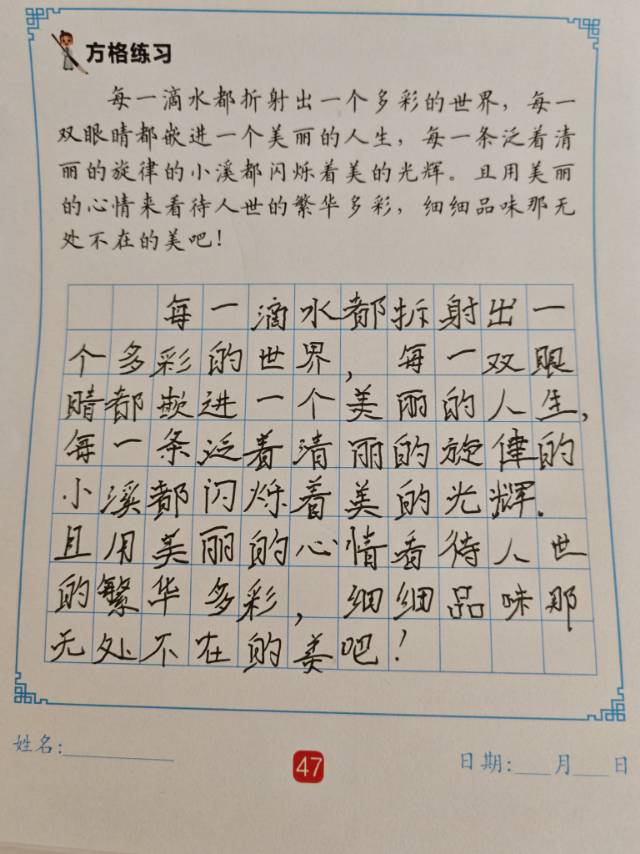 方格练习
每一滴水都折射出一个多彩的世界，每一
双眼睛都嵌进一个美丽的人生，每一条泛着清
丽的旋律的小溪都闪烁着美的光辉。且用美丽
的心情来看待人世的繁华多彩，细细品味那无
处不在的美吧！
每一滴水都折射出一
个多彩的世界，每一双眼
睛都嵌进一个美丽的人生，
每一条泛着清丽的旋律的
小溪都闪烁着美的光辉.
且用美丽的心情看待人世
的繁华多彩，细细品味那
无处不在的美吧！
姓名：
47
日期： 月 日